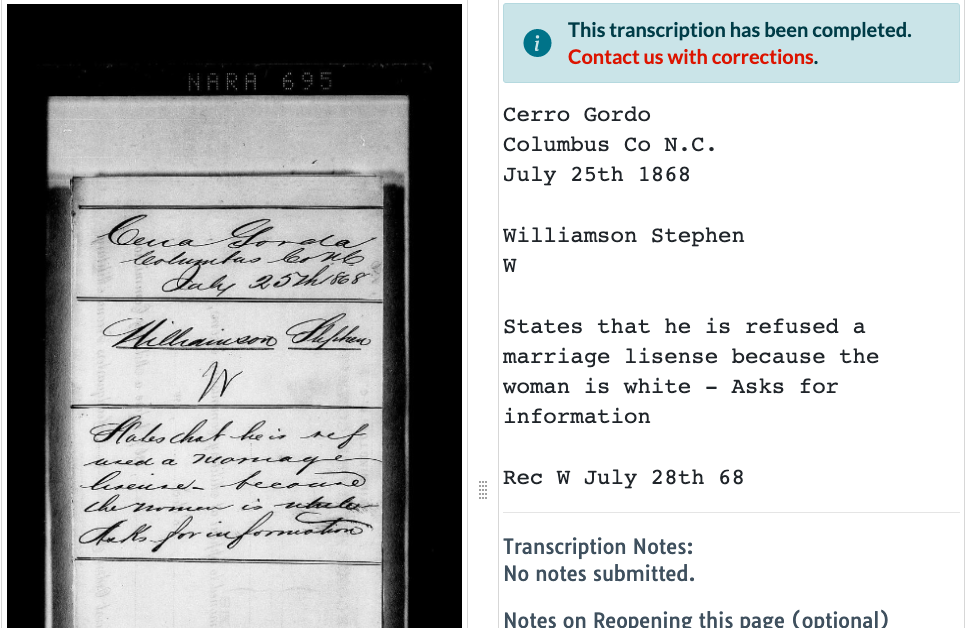 NARA 695
Cerra Gorda
Columbus Co N.C
July 25th 1868
Williamson Stephen
W
States that he is ref
used a marriage
lisense - because
the women is white-
Asks for information
This transcription has been completed.
Contact us with corrections.
Cerro Gordo
Columbus Co N.C.
July 25th 1868
Williamson Stephen
W
States that he is refused a
marriage lisense because the
woman is white – Asks for
information
Rec W July 28th 68
Transcription Notes:
No notes submitted.
Notes on Reopening this page (optional)